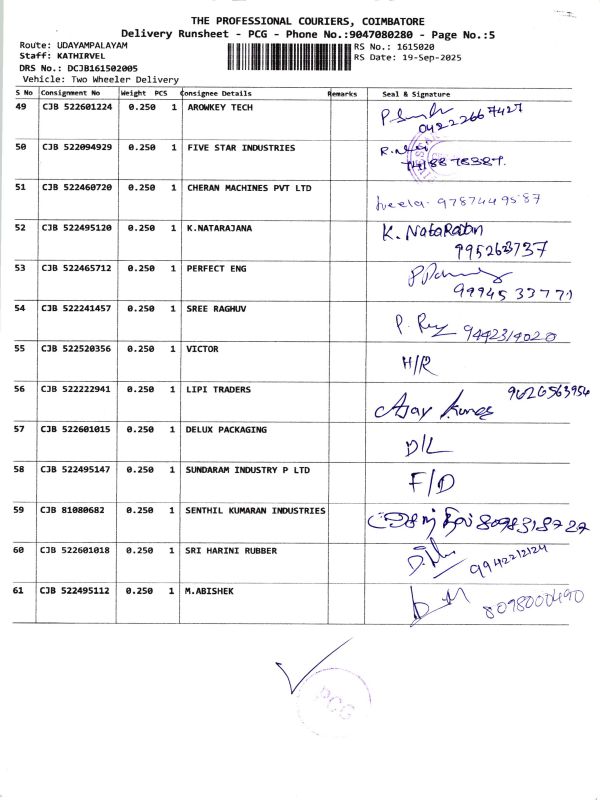 THE PROFESSIONAL COURIERS, COIMBATORE
Delivery Runsheet - PCG - Phone No.:9047080280 - Page No.:5
Route: UDAYAMPALAYAM
RS No.: 1615020
Staff: KATHIRVEL
RS Date: 19-Sep-2025
DRS No.: DCJB161502005
Vehicle: Two Wheeler Delivery
S No Consignment No Weight PCS Consignee Details Remarks Seal & Signature
49 CJB 522601224 0.250 1 AROWKEY TECH
04222667427
50 CJB 522094929 0.250 1 FIVE STAR INDUSTRIES
51 CJB 522460720 0.250 1 CHERAN MACHINES PVT LTD
9787449587
52 CJB 522495120 0.250 1 K.NATARAJANA K. NataRajan
995263737
53 CJB 522465712 0.250 1 PERFECT ENG
9994533771
54 CJB 522241457 0.250 1 SREE RAGHUV
9442314020
55 CJB 522520356 0.250 1 VICTOR H/R
56 CJB 522222941 0.250 1 LIPI TRADERS
Ajay Kumar
57 CJB 522601015 0.250 1 DELUX PACKAGING D/L
58 CJB 522495147 0.250 1 SUNDARAM INDUSTRY P LTD F/D
59 CJB 81080682 0.250 1 SENTHIL KUMARAN INDUSTRIES 8098318727
60 CJB 522601018 0.250 1 SRI HARINI RUBBER
9942212124
61 CJB 522495112 0.250 1 M.ABISHEK
8098000490
PCG